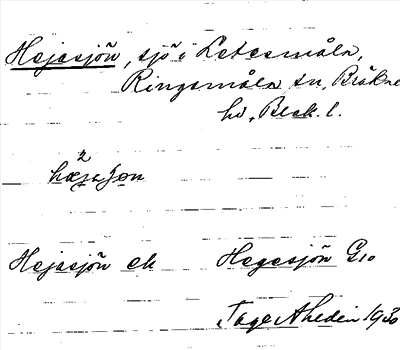 Hejasjön, sjö i Letesmåla,
Ringamåla sn, Bräkne
hd, Blek. l.
2
hæjaʃøn
Hejasjön ek Hegesjön G10
Tage Ahldin 1930